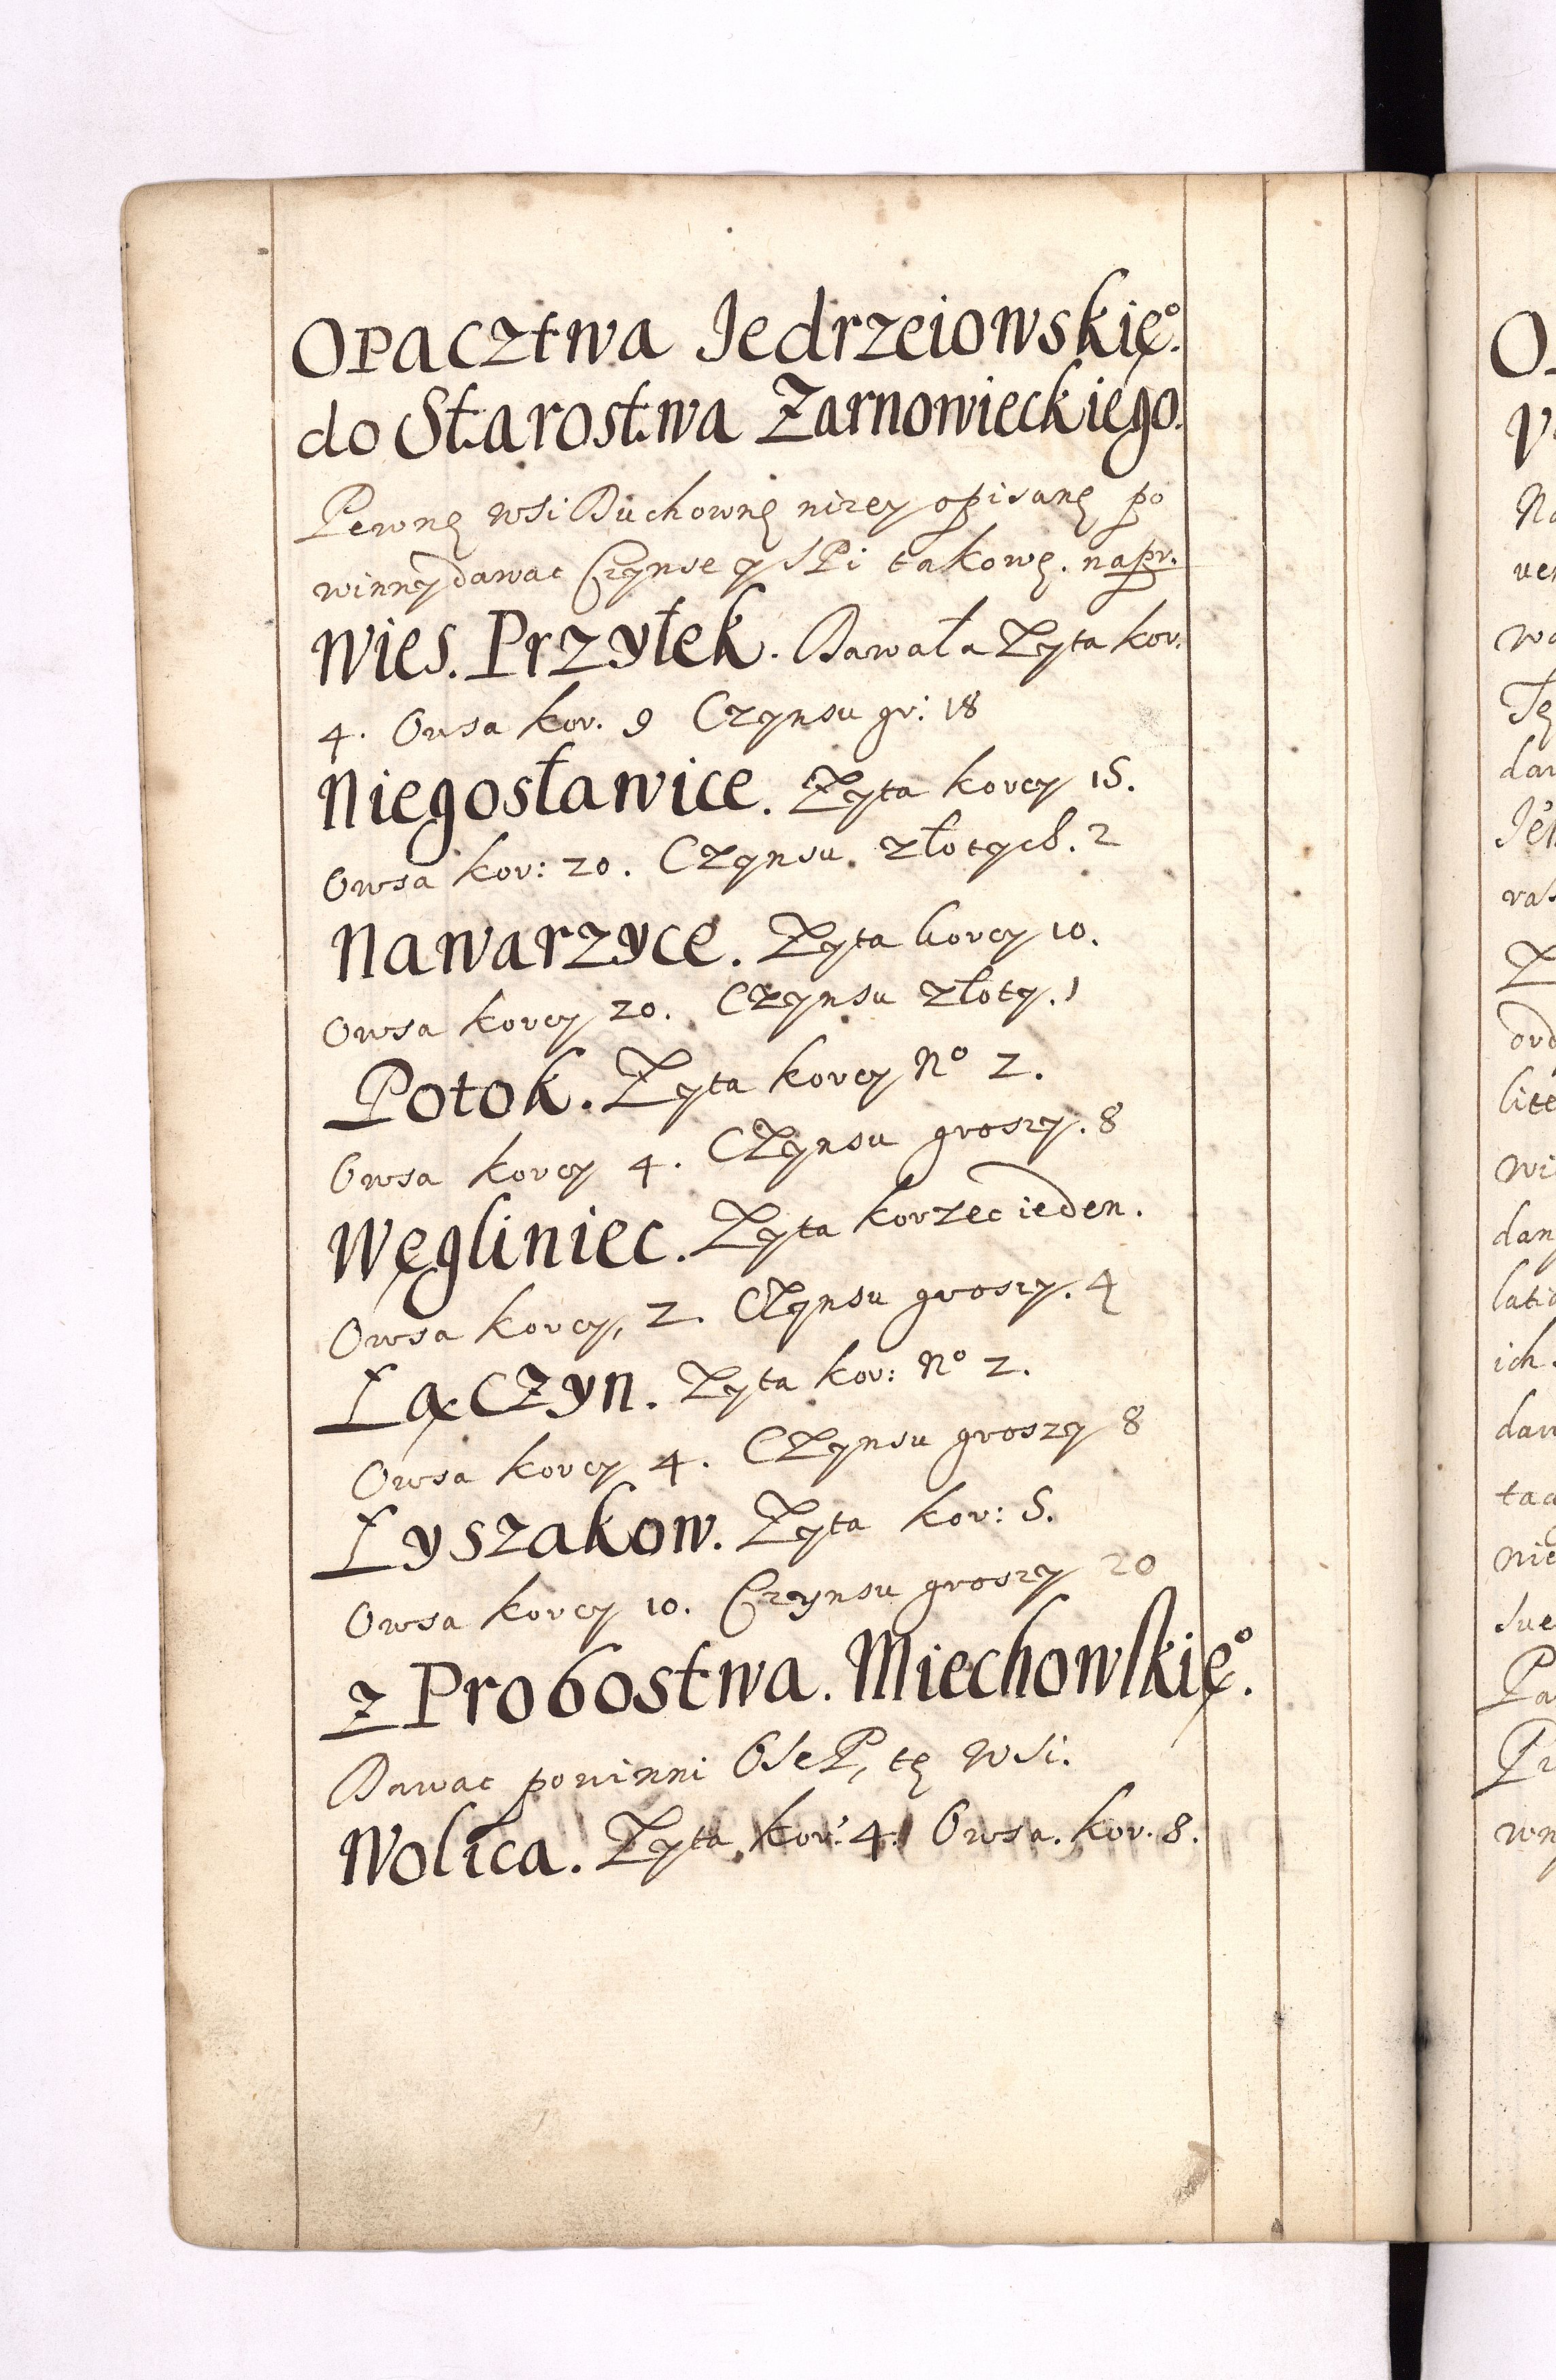 Opacztwa Jedrzeiowskię͒.
do Starostwa Zarnowieckiego.
Pewnę wsi Duchownę nizey opisanę po
winny dawac Czynse y SPi takowę. napr.
Wies. Przyłek. Dawała Zyta kor.
4. Owsa kor. 9 Czynsu gr: 18
Niegosławice. Zyta korcy 15.
Owsa kor: 20. Czynsu. złotych. 2
Nawarzyce. Zyta korcy 10.
Owsa korcy 20. Czynsu złoty. 1
Potok. Zyta korcy No 2.
Owsa korcy 4. Czynsu groszy. 8
Węgliniec. Zyta korzec ieden.
Owsa korcy, 2. Czynsu groszy. 4
Łączyn. Zyta kor: No 2.
Owsa korcy 4. Czynsu groszy 8
Łyszakow. Zyta kor: 5.
Owsa korcy 10. Czynsu groszy 20
z Probostwa. Miechowskięo.
Dawac powinni OseP, tę wsi.
Wolica. Zyta. kor: 4. Owsa. kor. 8.